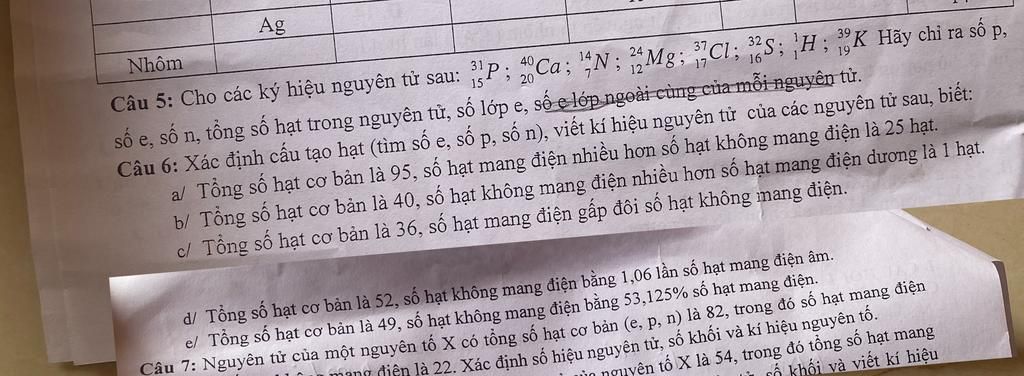 Ag
Nhôm
Câu 5: Cho các ký hiệu nguyên tử sau: ³¹₁₅P ; ⁴⁰₂₀Ca ; ¹⁴₇N ; ²⁴₁₂Mg ; ³⁷₁₇Cl ; ³²₁₆S ; ¹₁H ; ³⁹₁₉K Hãy chỉ ra số p,
số e, số n, tổng số hạt trong nguyên tử, số lớp e, số e lớp ngoài cùng của mỗi nguyên tử.
Câu 6: Xác định cấu tạo hạt (tìm số e, số p, số n), viết kí hiệu nguyên tử của các nguyên tử sau, biết:
a/ Tổng số hạt cơ bản là 95, số hạt mang điện nhiều hơn số hạt không mang điện là 25 hạt.
b/ Tổng số hạt cơ bản là 40, số hạt không mang điện nhiều hơn số hạt mang điện dương là 1 hạt.
c/ Tổng số hạt cơ bản là 36, số hạt mang điện gấp đôi số hạt không mang điện.
d/ Tổng số hạt cơ bản là 52, số hạt không mang điện bằng 1,06 lần số hạt mang điện âm.
e/ Tổng số hạt cơ bản là 49, số hạt không mang điện bằng 53,125% số hạt mang điện.
Câu 7: Nguyên tử của một nguyên tố X có tổng số hạt cơ bản (e, p, n) là 82, trong đó số hạt mang điện
mang điện là 22. Xác định số hiệu nguyên tử, số khối và kí hiệu nguyên tố.
nguyên tố X là 54, trong đó tổng số hạt mang
số khối và viết kí hiệu